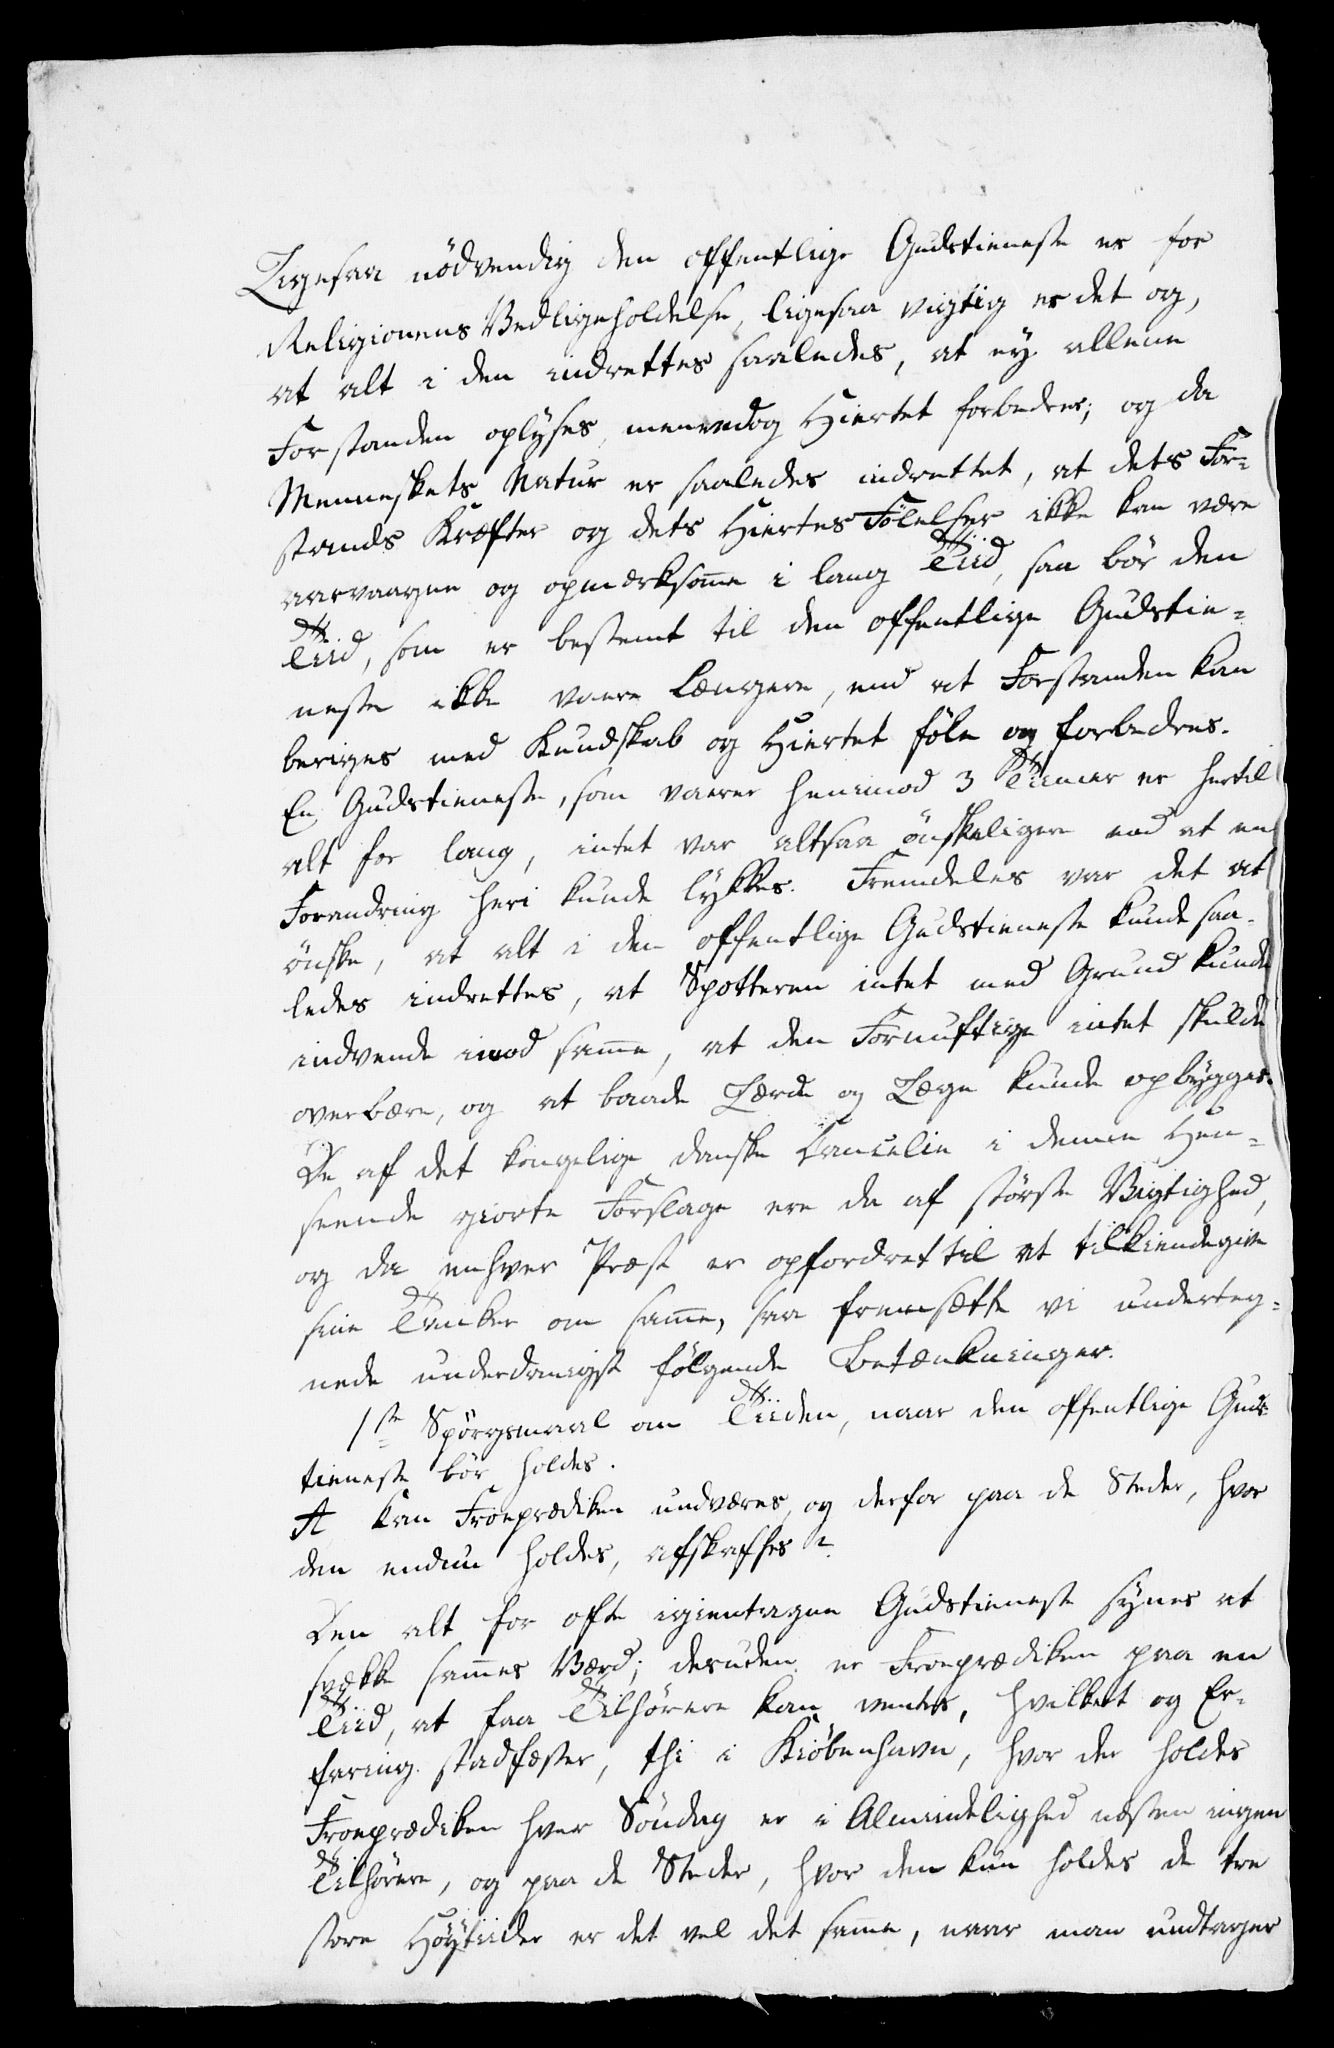 Ligesaa nödvendig den offentlige Gudstieneste er for
Religionens Vedligeholdelse, ligesaa vigtig er det og,
at alt i den indrettes saaledes, at ey allene
Forstanden oplyses, men endog Hiertet forbedres; og da
Menneskets Natur er saaledes indrettet, at dets For-
stands Kræfter og dets Hiertes Fölelser ikke kan være
aarvaagne og opmærksome i lang Tiid, saa bör den
Tiid, som er bestemt til den offentlige Gudstie-
neste ikke vaere længere, end at Forstanden kan
beriges med Kundskab og Hiertet föle og forbedres.
En Gudstieneste, som vaerer henimod 3 Tiimer er hertil
alt for lang, intet var altsaa önskeligere end at en
Forandring heri kunde lykkes. Fremdeles var det at
önske, at alt i den offentlige Gudstieneste kunde saa-
ledes indrettes, at Spotteren intet med Grund kunde
indvende imod samme, at den Fornuftige intet skulde
overbære, og at baade Lærde og Læge kunde opbygges.
De af det kongelige danske Cancelie i denne Hen-
seende giorte Forslage ere da af störste Vigtighed,
og da enhver Præst er opfordret til at tilkiendegive
sine Tanker om samme, saa fremsætte vi underteg-
nede underdanigst fölgende Betænkninger.
1ste Spörgsmaal om Tiiden, naar den offentlige Guds-
tieneste bör holdes.
A Kan Froeprædiken undværes, og derfor paa de Steder, hvor
den endnu holdes, afskaffes?
Den alt for ofte igientagne Gudstieneste synes at
svække sammes Værd; desuden er Froeprædiken paa en
Tiid, at faa Tilhörere kan ventes, hvilket og Er-
faring stadfæster, thi i Kiöbenhavn, hvor der holdes
Froeprædiken hver Söndag er i Almindelighed næsten ingen
Tilhörere, og paa de Steder, hvor den kun holdes de tre
store Höytiider er det vel det samme, naar man undtager